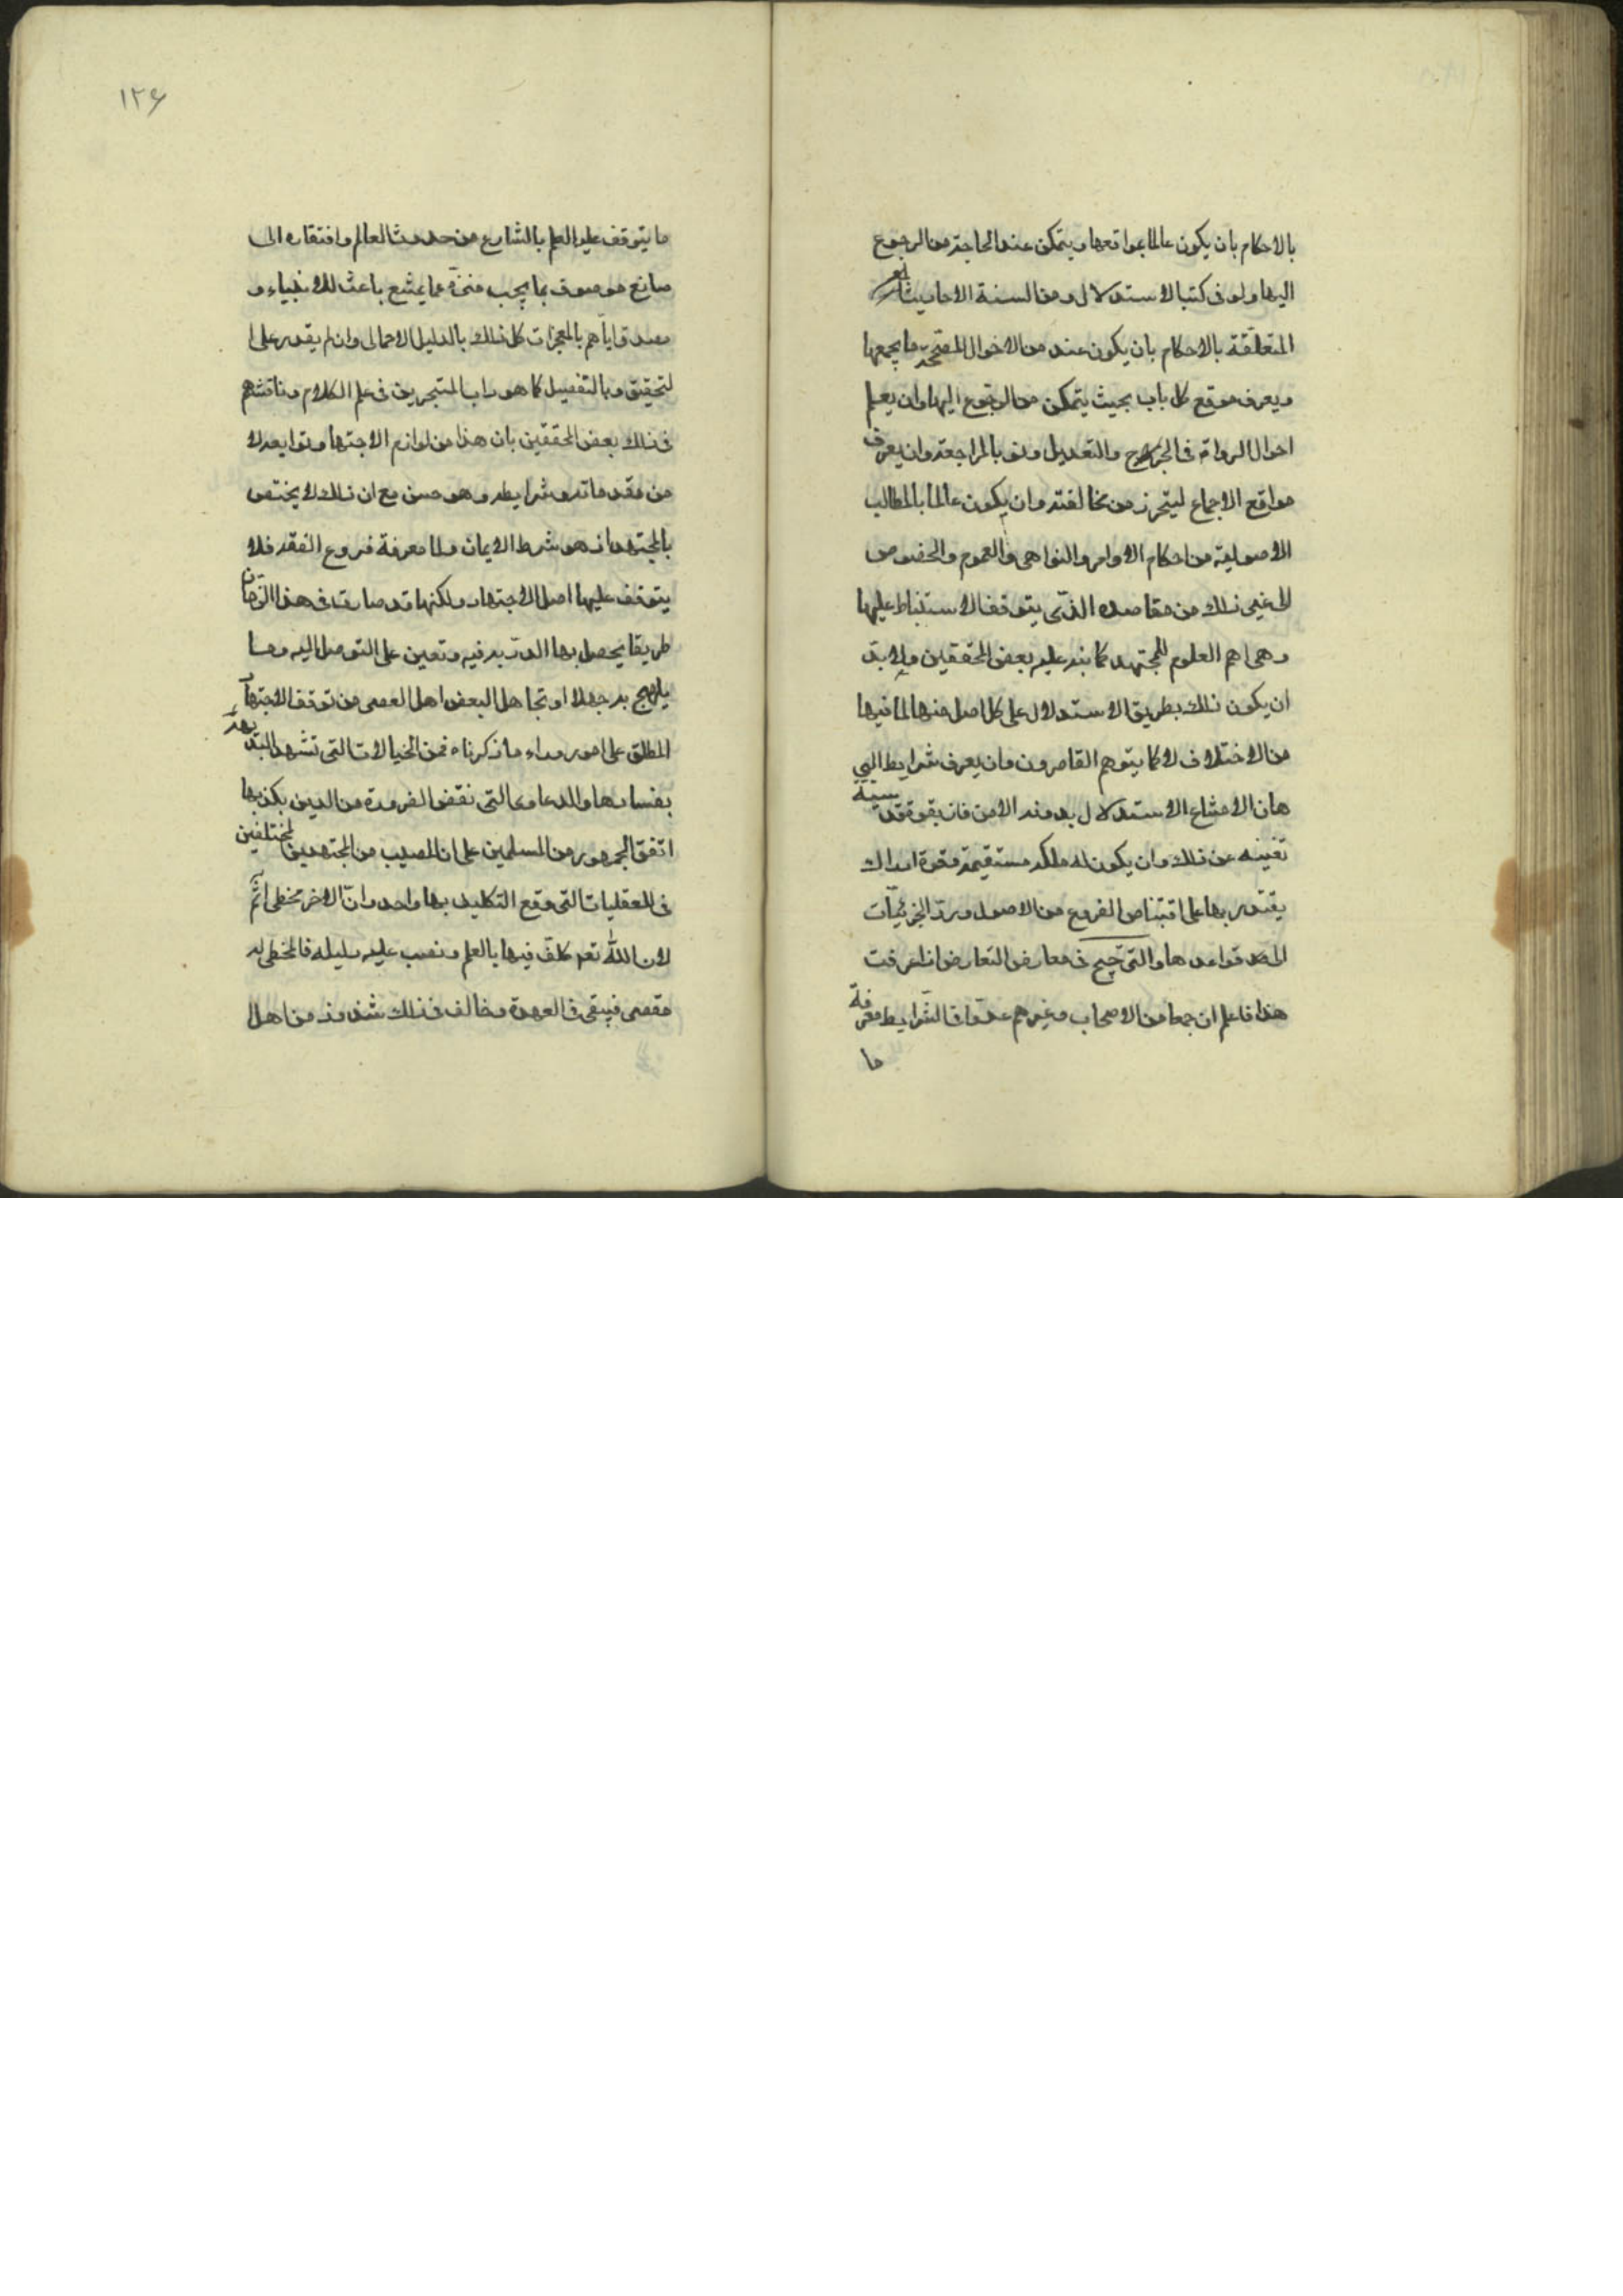 بالاحكام بان يكون عالما بمواقعها ويتمكن عند الحاجة من الرجوع
اليها ولو فى كتب الاستدلال ومن السنة الاحاديث
المتعلقة بالاحكام بان يكون عنده من الاصول المصححة ما يجمعها
ويعرف موقع كل باب بحيث يتمكن من الرجوع اليها وان يعلم
احوال الرواة فى الجرح والتعديل ولو بالمراجعة وان يعرف
مواقع الاجماع ليتحرز من مخالفته وان يكون عالما بالمطالب
الاصولية من احكام الاوامر والنواهى والعموم والخصوص
الى غير ذلك من مقاصده التى يتوقف الاستنباط عليها
وهى اهم العلوم للمجتهد كما نبه عليه بعض المحققين ولا بد
ان يكون ذلك بطريق الاستدلال على كل اصل منها لما فيها
من الاختلاف لا كما يتوهم القاصرون وان يعرف شرايط البر
هان لامتناع الاستدلال بدونه الا من فاز بقوة قدسية
تغنيه عن ذلك وان يكون له ملكة مستقيمة وقوة ادراك
يقتدر بها على اقتناص الفروع من الاصول ورد الجزئيات
الى قواعدها والترجيح فى معارض التعارض اذا عرفت
هذا فاعلم ان جمعا من الاصحاب وغيرهم عدوا فى الشرايط معرفة
ما
١٢٦
ما يتوقف عليه العلم بالشارع من حدوث العالم وافتقاره الى
صانع موصوف بما يجب منزه عما يمتنع باعث للانبياء و
مصدق اياهم بالمعجزات كل ذلك بالدليل الاجمالى وان لم يقدر على ا
لتحقيق وبالتفصيل كما هو داب المتبحرين فى علم الكلام وناقشهم
فى ذلك بعض المحققين بان هذا من لوازم الاجتهاد وتوابعه لا
من مقدماته وشرايطه وهو حسن مع ان ذلك لا يختص
بالمجتهد اذ هو شرط الايمان واما معرفة فروع الفقه فلا
يتوقف عليها اصل الاجتهاد ولكنها قد صارت فى هذا الزمان
طريقا يحصل بها الدربة فيه وتعين على التوصل اليه وما
يلهج به جهلا او تجاهلا بعض اهل العصر من توقف الاجتهاد
المطلق على امور وراء ما ذكرناه فمن الخيالات التى تشهد البديهة
بفسادها والدعاوى التى نقض الضرورة من الدين بكذبها
اتفق الجمهور من المسلمين على ان المصيب من المجتهدين المختلفين
فى العقليات التى وقع التكليف بها واحد وان الاخر مخطى آثم
لان الله تعه كلف فيها بالعلم ونصب عليه دليله فالمخطى له
مقصر فيبقى فى العهدة وخالف فى ذلك شذوذ من اهل